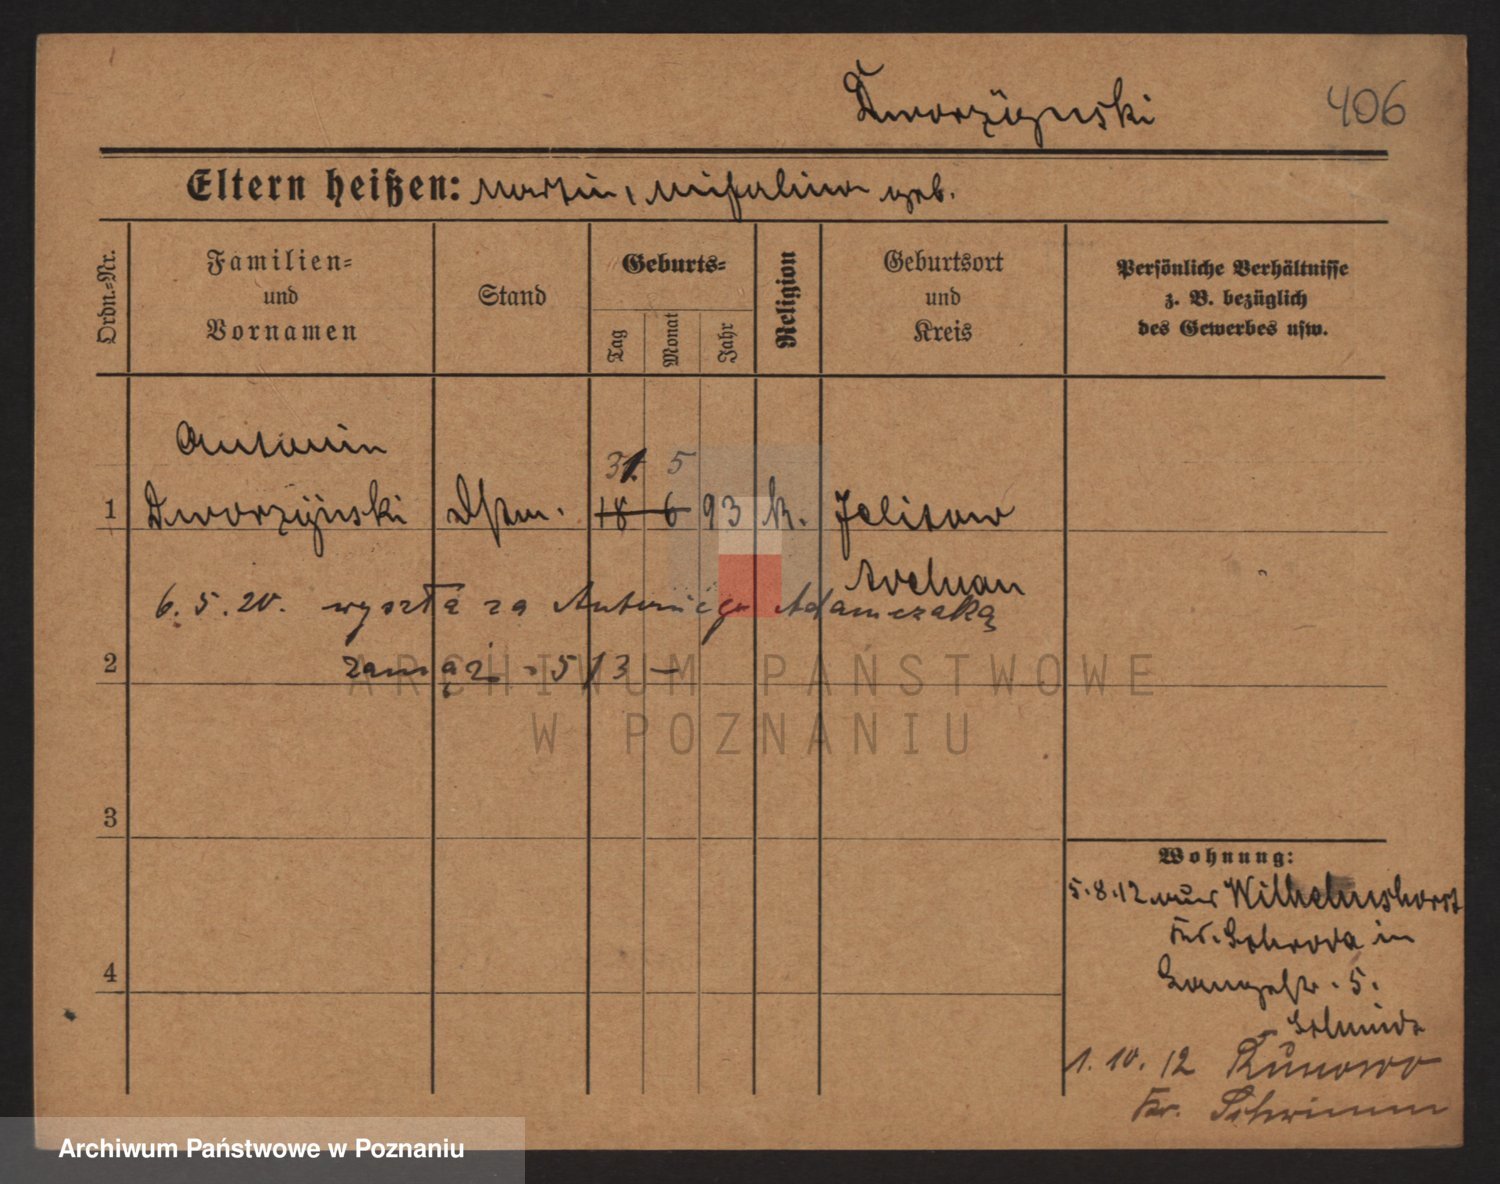 Dworzÿnski
406
Eltern heißen: Martin, Michalina geb.
Ordn.=Nr.
Familien=
und
Vornamen
Stand
Geburts=
Tag
Monat
Jahr
Religion
Geburtsort
und
Kreis
Persönliche Verhältnisse
z. B. bezüglich
des Gewerbes usw.
Antonin
31. 5
1 Dworzÿnski 18 6 93 k. Jelitow
6.5.20. wyszła za Antoniego Adamczaka
2 zamąż - 5/3 —
3
4
Wohnung:
5.8.12 aus Wilhelmshorst
Kr. Schroda in
Langestr. 5.
Schmidt
1.10.12 Kunowo
Kr. Schrimm
ARCHIWUM PAŃSTWOWE
W POZNANIU
Archiwum Państwowe w Poznaniu